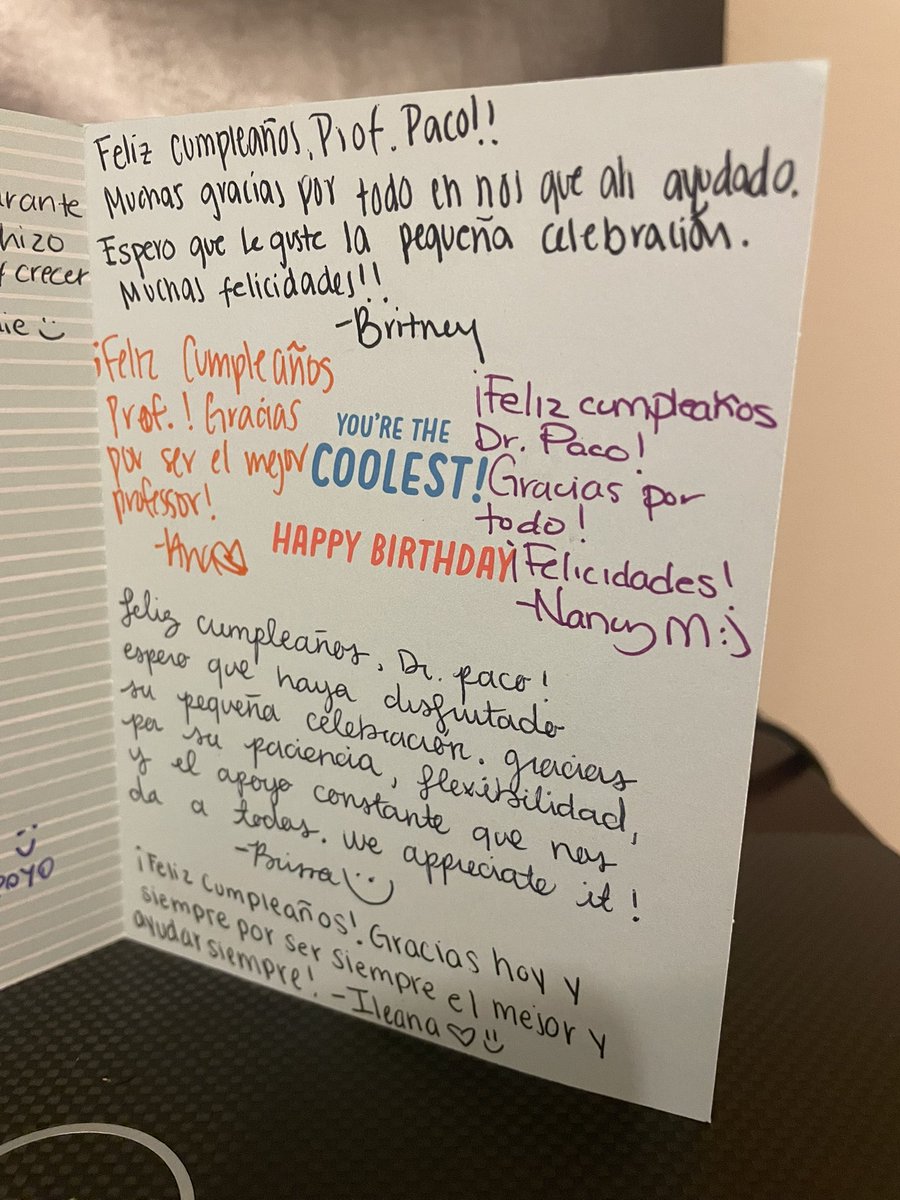 urante
hizo
crecer
ie :)
:)
poyo
Feliz cumpleaños, Prof. Paco!!
Muchas gracias por todo en nos que ah ayudado.
Espero que le guste la pequeña celebración.
Muchas felicidades!!
-Britney
¡Feliz Cumpleaños
Prof.! Gracias
por ser el mejor
professor!
-Ana♡
YOU'RE THE
COOLEST!
HAPPY BIRTHDAY
¡Feliz cumpleaños
Dr. Paco!
Gracias por
todo!
¡Felicidades!
-Nancy M :)
feliz cumpleaños, Dr. paco!
espero que haya disfrutado
su pequeña celebración. gracias
por su paciencia, flexibilidad,
y el apoyo constante que nos
da a todas. we appreciate it!
-Brissa :)
¡Feliz Cumpleaños! Gracias hoy y
siempre por ser siempre el mejor y
ayudar siempre! -Ileana ♡ :)